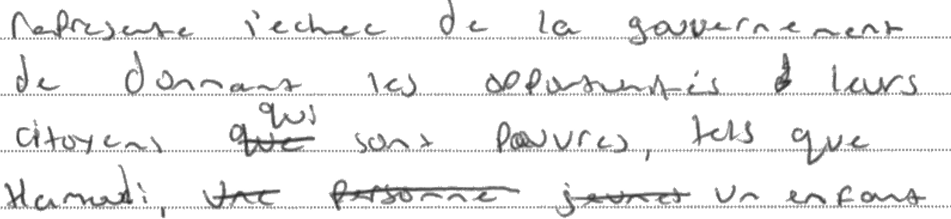 represente l'echec de la gouvernement
de donnant les opportunités à leurs
citoyens que qui sont pauvres, tels que
Hamadi, une personne jeunes un enfant